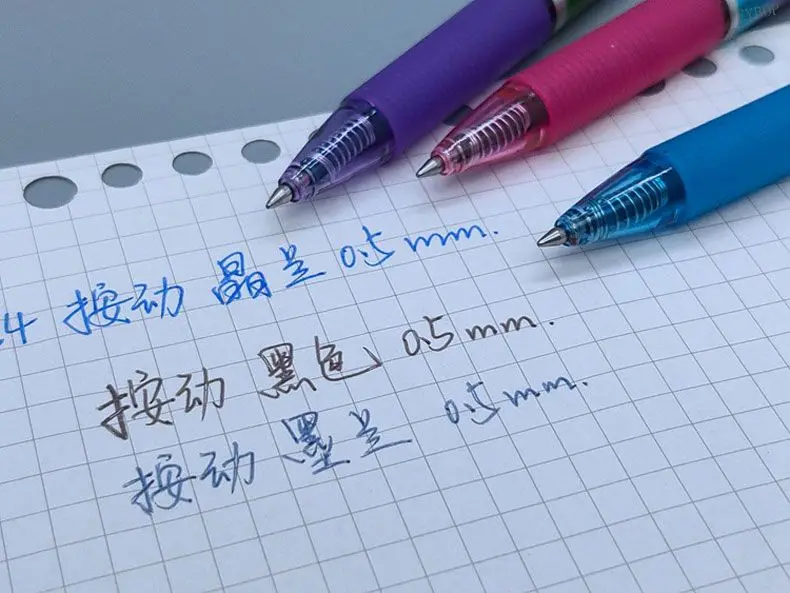 4 按动 晶兰 0.5mm.
按动 黑色 0.5mm.
按动 墨兰 0.5mm.